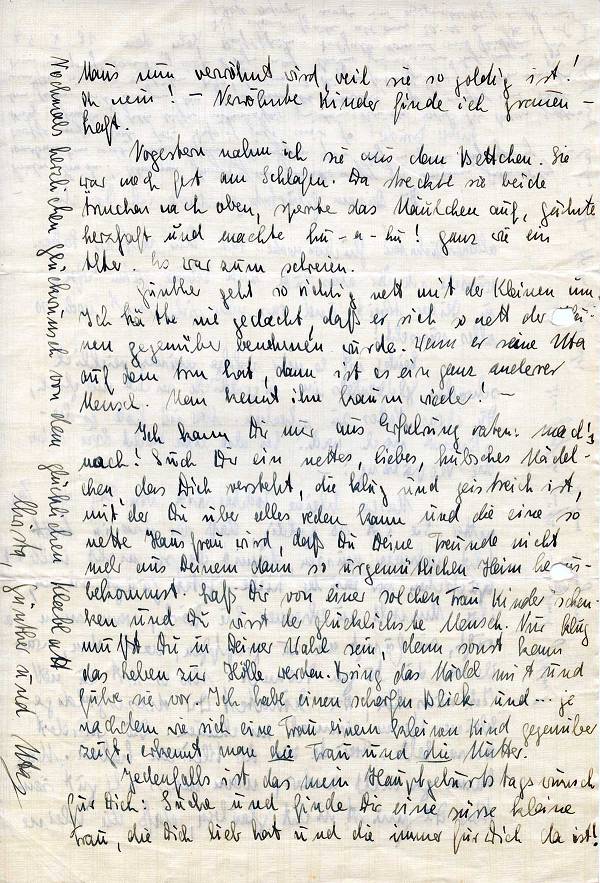 Maus nun verwöhnt wird, weil sie so goldig ist!
Oh nein! – Verwöhnte Kinder finde ich grauen-
haft.
Vorgestern nahm ich sie aus dem Bettchen. Sie
war noch fest am Schlafen. Da streckte sie beide
Ärmchen nach oben, sperrte das Mäulchen auf, gähnte
herzhaft und machte hu-a-hu! ganz wie ein
Alter. Es war zum schreien.
Günther geht so richtig nett mit der Kleinen um.
Ich hätte nie gedacht, daß er sich so nett der Klei-
nen gegenüber benehmen würde. Wenn er seine Uta
auf dem Arm hat, dann ist es ein ganz anderer
Mensch. Man kennt ihn kaum wieder! –
Ich kann Dir nur aus Erfahrung raten: mach's
nach! Such Dir ein nettes, liebes, hübsches Mädel-
chen, das Dich versteht, die klug und geistreich ist,
mit der Du über alles reden kann und die eine so
nette Hausfrau wird, daß Du Deine Freunde nicht
mehr aus Deinem dann so urgemütlichen Heim heraus-
bekommst. Laß Dir von einer solchen Frau Kinder schen-
ken und Du wirst der glücklichste Mensch. Nur klug
mußt Du in Deiner Wahl sein, denn sonst kann
das Leben zur Hölle werden. Bring das Mädel mit und
führe sie vor. Ich habe einen scharfen Blick und... je
nachdem wie sich eine Frau einem kleinen Kind gegenüber
zeigt, erkennt man die Frau und die Mutter.
Jedenfalls ist das mein Hauptgeburtstagswunsch
für Dich: Suche und finde Dir eine süsse kleine
Frau, die Dich lieb hat und die immer für Dich da ist!
Nochmals herzlichen Glückwunsch von dem glücklichen Kleeblatt
Christa, Günther und Uta